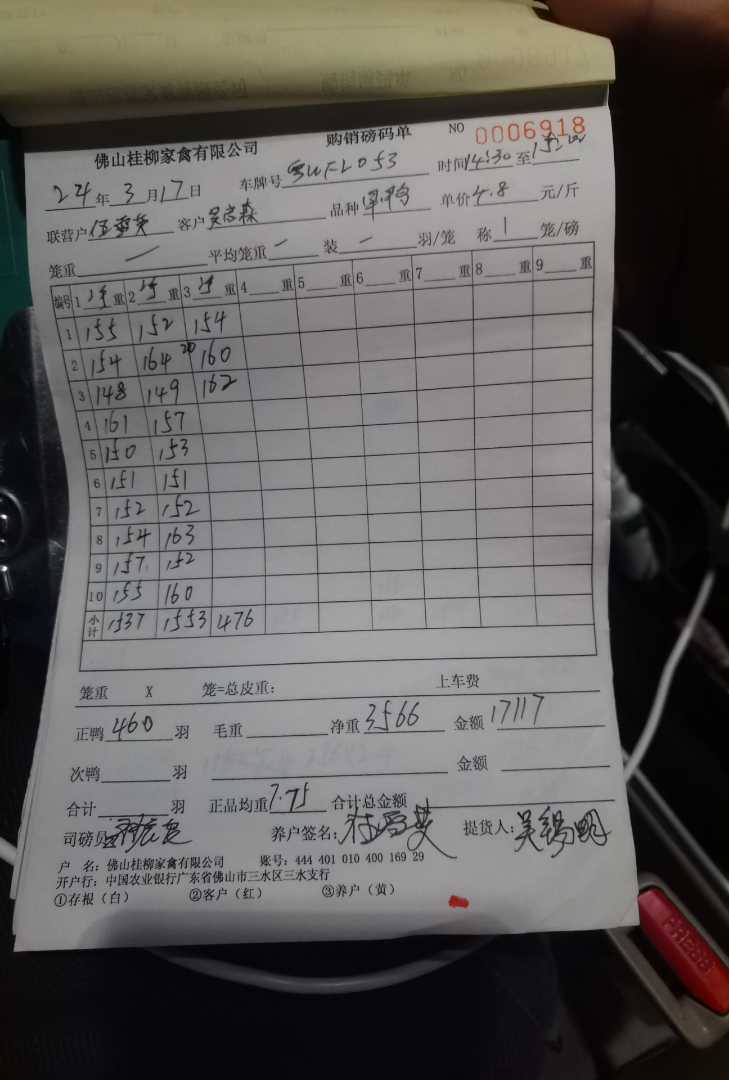 佛山桂柳家禽有限公司 购销磅码单 NO 0006918
24年3月17日 车牌号 时间14:30至
联营户 客户 品种 单价4.8元/斤
笼重 一 平均笼重 一 装 一 羽/笼 称 1 笼/磅
编号 1 净重 2 净重 3 净重 4 重 5 重 6 重 7 重 8 重 9 重
1 155 152 154
2 154 164 20 160
3 148 149 162
4 161 157
5 150 153
6 151 151
7 152 152
8 154 163
9 157 152
10 155 160
小计 1537 1553 476
笼重 X 笼=总皮重: 上车费
正鸭 460 羽 毛重 净重 3566 金额 17117
次鸭 羽 金额
合计 羽 正品均重 7.75 合计总金额
司磅员 养户签名: 提货人: 吴锡明
户 名: 佛山桂柳家禽有限公司 账号: 444 401 010 400 169 29
开户行: 中国农业银行广东省佛山市三水区三水支行
①存根(白) ②客户(红) ③养户(黄)
PRESS